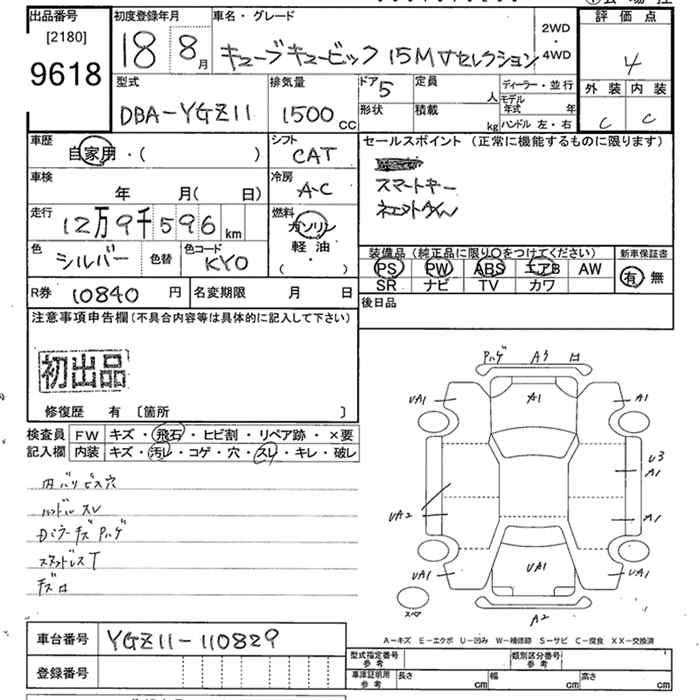 出品番号
[2180]
9618
初度登録年月
18 8月
車名・グレード
キューブキュービック 15M Vセレクション
2WD・4WD
評価点
4
外装 内装
C C
型式
DBA-YGZ11
排気量
1500cc
ドア 5
形状
定員 人
積載 kg
ディーラー・並行
モデル年式 年
ハンドル 左・右
車歴
自家用・( )
シフト
CAT
セールスポイント (正常に機能するものに限ります)
スマートキー
車検
年 月( 日)
冷房
A-C
走行
12万9千596km
燃料
ガソリン
軽油・
( )
色
シルバー
色替
色コード
KY0
装備品 (純正品に限り○をつけてください)
PS PW ABS エアB AW
SR ナビ TV カワ
新車保証書
有 無
R券 10840円
名変期限 月 日
後日品
注意事項申告欄 (不具合内容等は具体的に記入して下さい)
初出品
修復歴 有 [箇所 ]
検査員記入欄
FW キズ・飛石・ヒビ割・リペア跡・×要
内装 キズ・汚レ・コゲ・穴・スレ・キレ・破レ
内バリビス穴
ハンドルスレ
Dミラーキズ Pハゲ
スタッドレスT
キズロ
Pハゲ A3 ロ
UA1 A1 A1
U3
A1
UA2 A1
UA1 UA1 UA1
スペア
A2
A-キズ E-エクボ U-凹み W-補修跡 S-サビ C-腐食 XX-交換済
車台番号 YGZ11-110829
登録番号
型式指定番号 参考
類別区分番号 参考
車庫証明用 参考 長さ cm 幅 cm 高さ cm